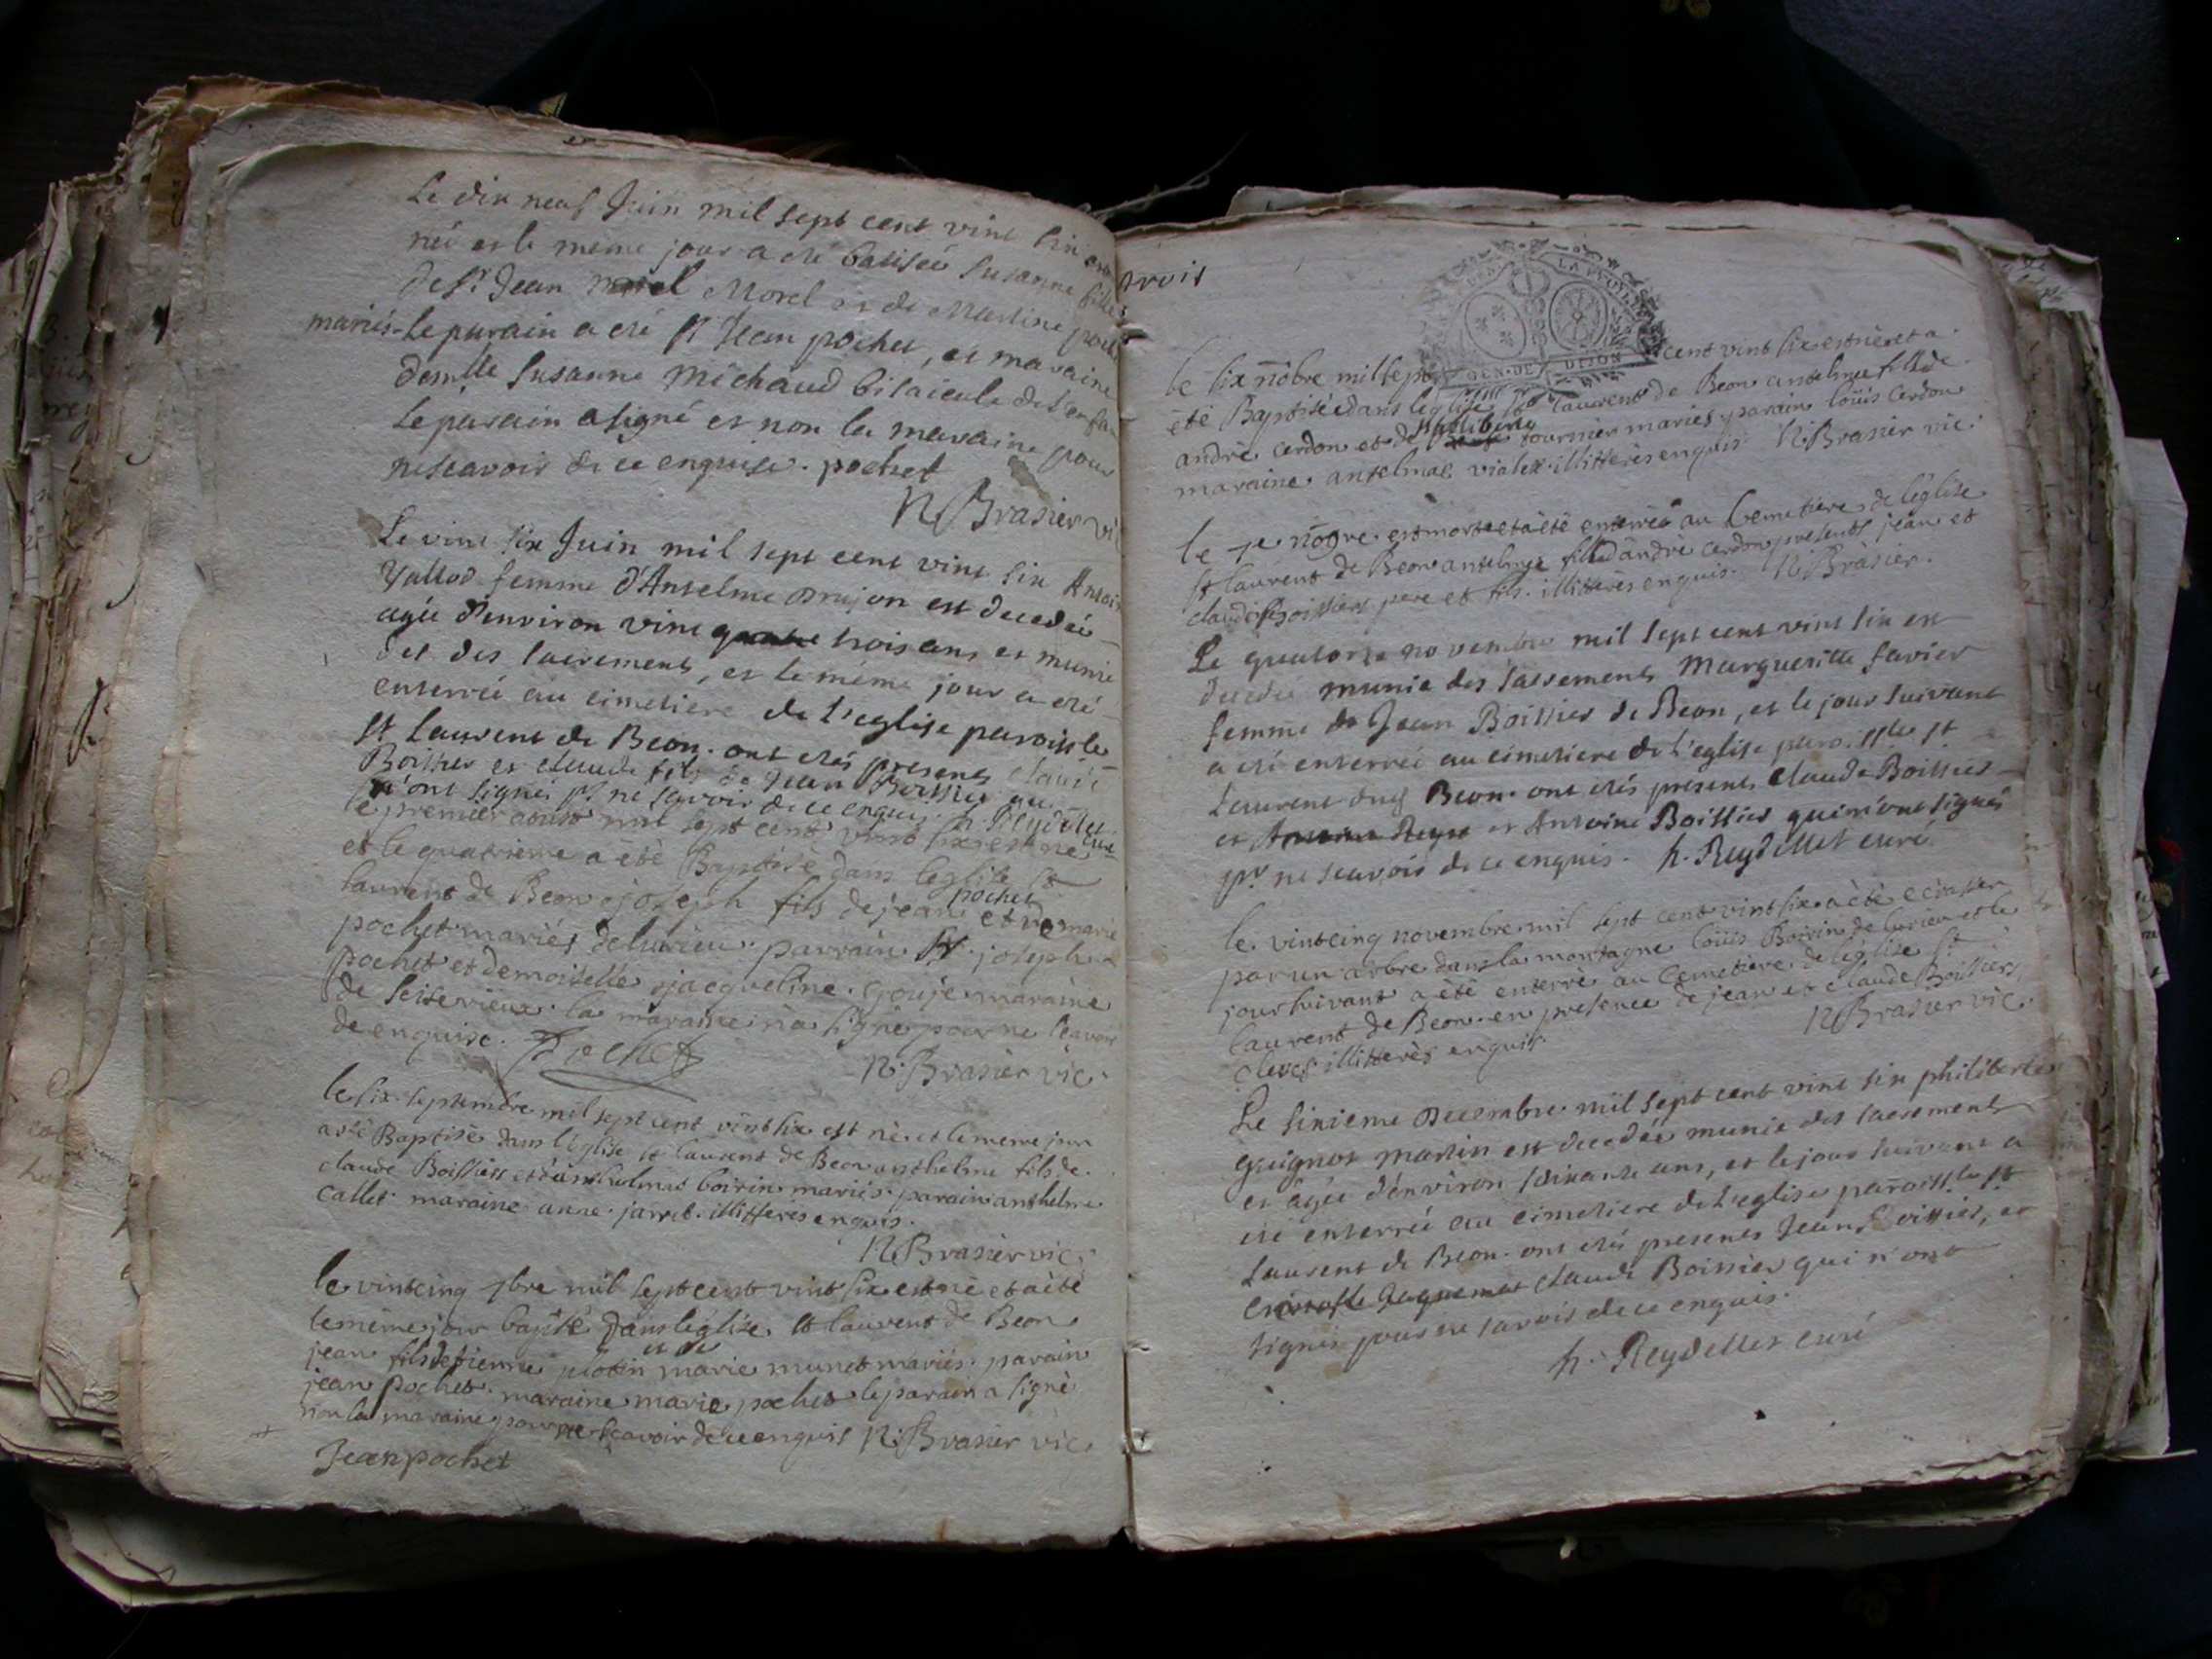 Le dix neuf Juin mil sept cent vint six est
née et le même jour a été batisée Susanne fille
de Sr Jean Morel et de Martine
mariés. Le parain a eté Sr Jean pochet, et maraine
demlle Susanne Michaud bisaieule de l'enfan
Le parain a signé et non la maraine pour
ne scavoir de ce enquise. pochet
N Brasier vic
Le vint six Juin mil sept cent vint six
femme d'Anselme est decedée
agée d'environ vint trois ans et munie
det des sacrements, et le même jour a eté
enterrée au cimetiere de l'eglise paroissle
St Laurent de Beon. ont etés presents claude
Boissier et claude fils de Jean Boissier qui
n'ont signé pr ne scavoir de ce enquis. h. Reydellet curé
le premier aoust mil sept cent vint six est né
et le quatrieme a été Baptisé dans l'eglise St
laurent de Beon joseph fils de jean pochet et de marie
pochet mariés de lurieu. parrain Sr. joseph
pochet et demoiselle jacqueline. Gouje maraine
de la maraine n'a signé pour ne scavoir
de enquise. Pochet
N. Brasier vic.
le six septembre mil sept cent vint six est né et le meme jour
a eté Baptisé dans l'eglise St laurent de Beon anthelme fils de
claude Boissier et d'anthelmae boirin mariés. parain anthelme
callet maraine anne. jarret. illitteres enquis.
N Brasier vic.
le vintcinq 7bre mil sept cent vint six est né et a été
le même jour baptisé dans l'église St laurent de Beon
jean fils d'etienne et de marie munet mariés. parain
jean pochet. maraine marie pochet le parain a signé
non la maraine pour ne scavoir de ce enquis N. Brasier vic.
Jean pochet
trois
GEN. DE DIJON
le six nobre mil sept cent vint six est née et a
été Baptisée dans l'eglise St laurent de Beon anselmee fille de
andré cerdon et de philiberte fournier mariés. parain loüis cerdon
maraine anselmae violet. illitterés enquis. N. Brasier vic.
le 7e nobre est morte et a été enterrée au Cemetiere de léglise
St laurent de Beon anselmee fille d'andré cerdon presents jean et
claude Boissiers pere et fils. illitterés enquis. N. Brasier.
Le quatorze novembre mil sept cent vint six est
decedée munie des sacrements Margueritte favier
femme de Jean Boissier de Beon, et le jour suivant
a été enterrée au cimetiere de l'eglise paroissle St
Laurent dud Beon. ont etés presents Claude Boissier
et et Antoine Boissier qui n'ont signés
pr ne scavoir de ce enquis. h. Reydellet curé
le vintcinq novembre mil sept cent vint six a été ecrasser
par un arbre dans la montagne loüis Boirin de lurieu et le
jour suivant a été enterré au Cemetiere de léglise St
laurent de Beon en presence de jean et claude Boissiers
illitterés enquis. N Brasier vic.
Le sixieme Decembre mil sept cent vint six philiberte
guignot martin est decedée munie des sacrements
et agée d'environ soixante ans, et le jour suivant a
eté enterrée au cimetiere de l'eglise paroissle St
Laurent de Beon. ont etés presents Jean Boissier, et
claude Boissier qui n'ont
signés pour ne scavoir de ce enquis.
h. Reydellet curé